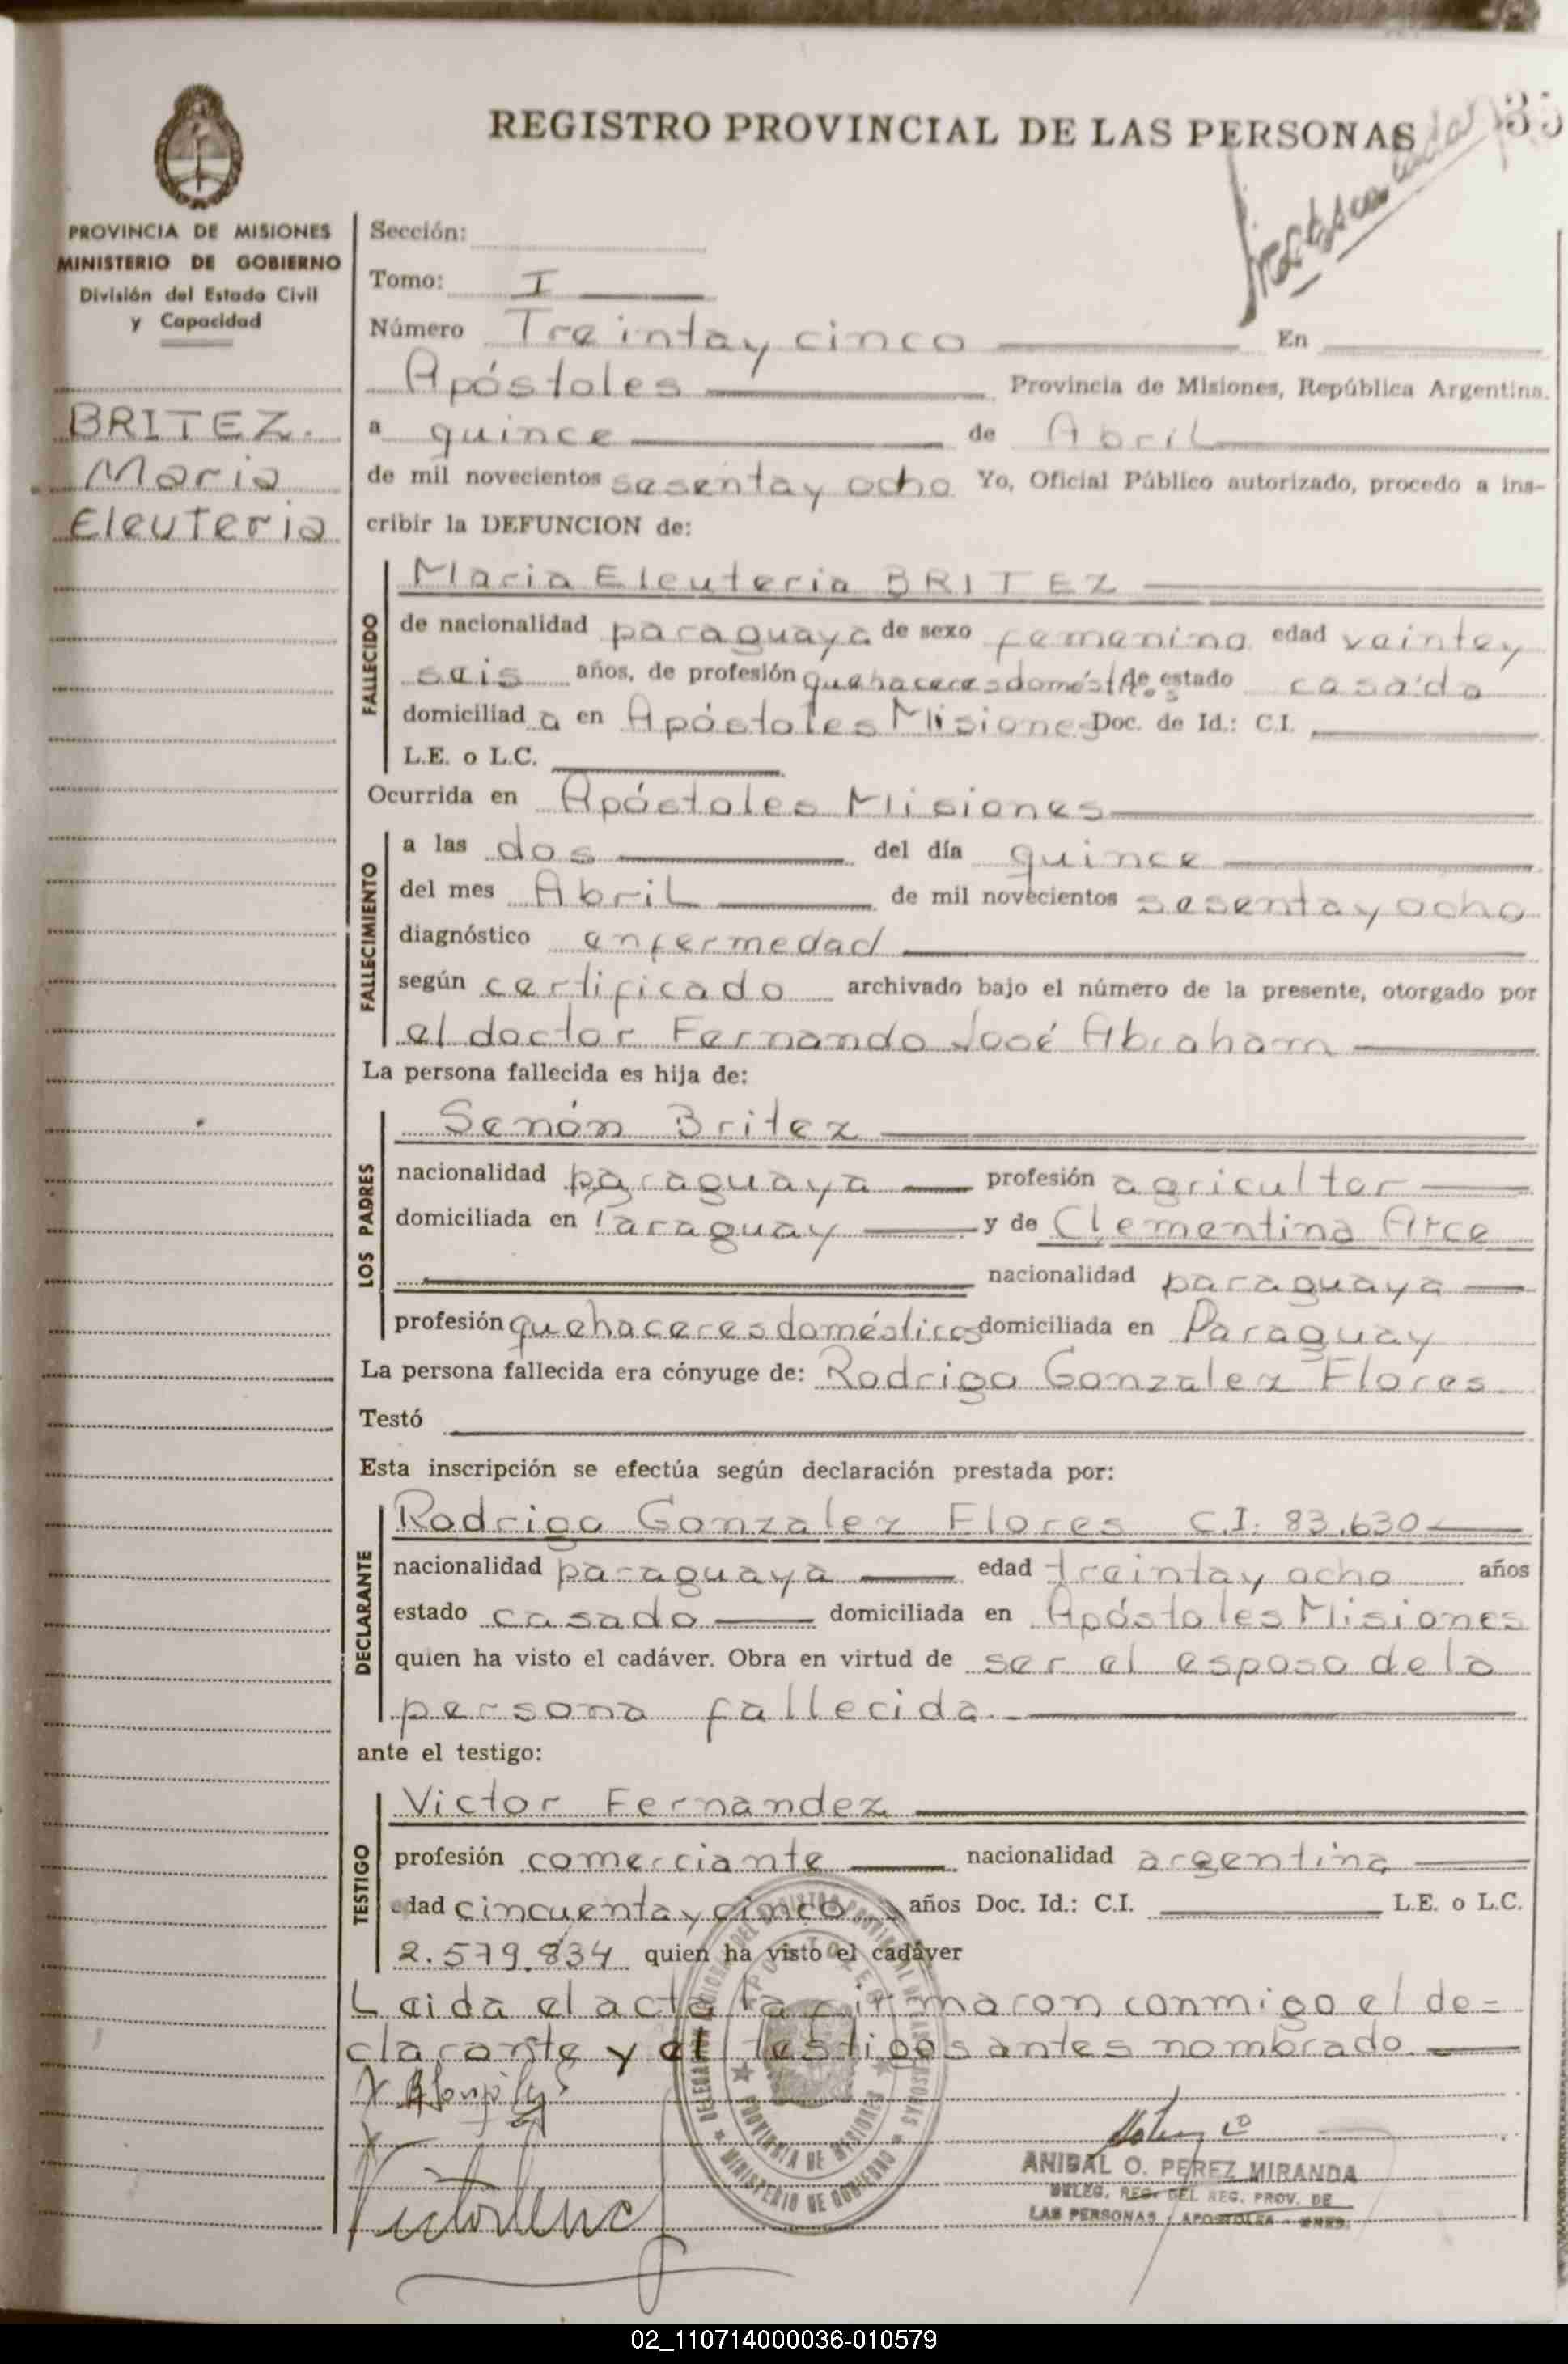 REGISTRO PROVINCIAL DE LAS PERSONAS
35
PROVINCIA DE MISIONES
MINISTERIO DE GOBIERNO
División del Estado Civil
y Capacidad
BRITEZ.
Maria
Eleuteria
Sección:
Tomo: I
Número Treinta y cinco En
Apóstoles Provincia de Misiones, República Argentina.
a quince de Abril
de mil novecientos sesenta y ocho Yo, Oficial Público autorizado, procedo a ins-
cribir la DEFUNCION de:
FALLECIDO
Maria Eleuteria BRITEZ
de nacionalidad paraguaya de sexo femenino edad veinte y
seis años, de profesión quehaceres domésticos de estado casada
domiciliad a en Apóstoles Misiones Doc. de Id.: C.I.
L.E. o L.C.
Ocurrida en Apóstoles Misiones
FALLECIMIENTO
a las dos del día quince
del mes Abril de mil novecientos sesenta y ocho
diagnóstico enfermedad
según certificado archivado bajo el número de la presente, otorgado por
el doctor Fernando José Abraham
La persona fallecida es hija de:
LOS PADRES
Senón Britez
nacionalidad paraguaya profesión agricultor
domiciliada en Paraguay y de Clementina Arce
nacionalidad paraguaya
profesión quehaceres domésticos domiciliada en Paraguay
La persona fallecida era cónyuge de: Rodrigo Gonzalez Flores
Testó
Esta inscripción se efectúa según declaración prestada por:
DECLARANTE
Rodrigo Gonzalez Flores C.I. 83.630
nacionalidad paraguaya edad treinta y ocho años
estado casado domiciliada en Apóstoles Misiones
quien ha visto el cadáver. Obra en virtud de ser el esposo de la
persona fallecida.
ante el testigo:
TESTIGO
Victor Fernandez
profesión comerciante nacionalidad argentina
edad cincuenta y cinco años Doc. Id.: C.I. L.E. o L.C.
2.579.834 quien ha visto el cadáver
Leida el acta la firmaron conmigo el de=
clarante y el testigos antes nombrado.
PROVINCIA DE MISIONES
MINISTERIO DE GOBIERNO
ANIBAL O. PEREZ MIRANDA
DELEG. REG. DEL REG. PROV. DE
LAS PERSONAS / APOSTOLES - MNES.
02_110714000036-010579